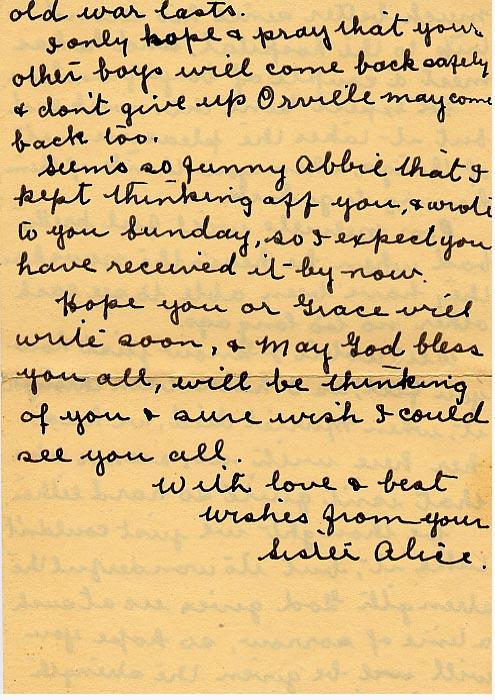 old war lasts.
I only hope & pray that your
other boys will come back safely
& don't give up Orville may come
back too.
Seems so funny Abbie that I
kept thinking off you, & wrote
to you Sunday, so I expect you
have received it by now.
Hope you or Grace will
write soon, & May God bless
you all, will be thinking
of you & sure wish I could
see you all.
With love & best
wishes from your
Sister Alice.